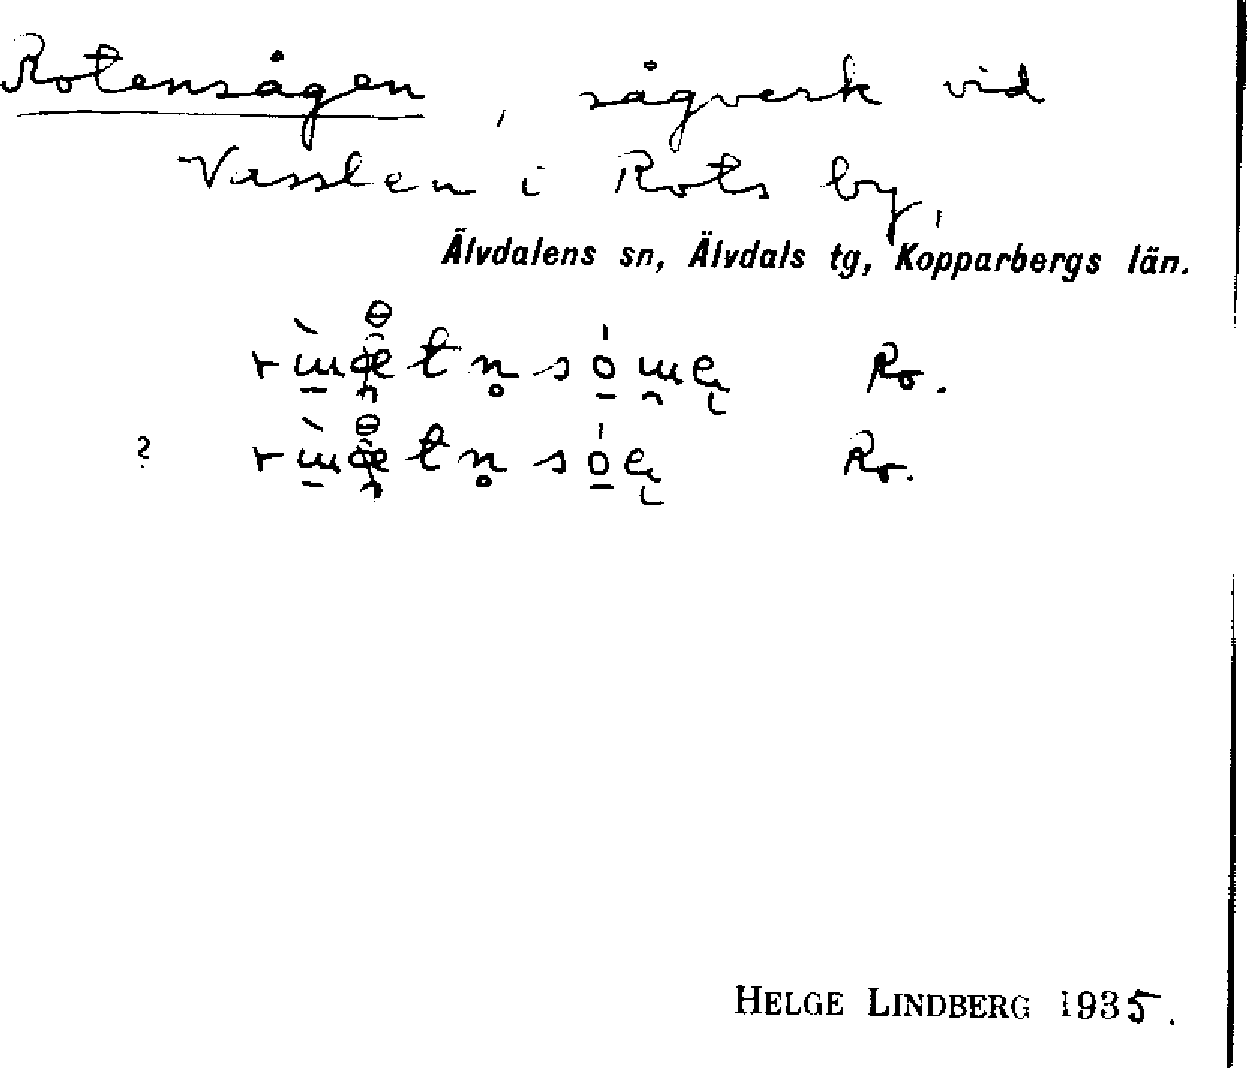 Rotensågen, sågverk vid
Vasslen i Rots by,
Älvdalens sn, Älvdals tg, Kopparbergs län.
Ro.
? Ro.
HELGE LINDBERG 1935.